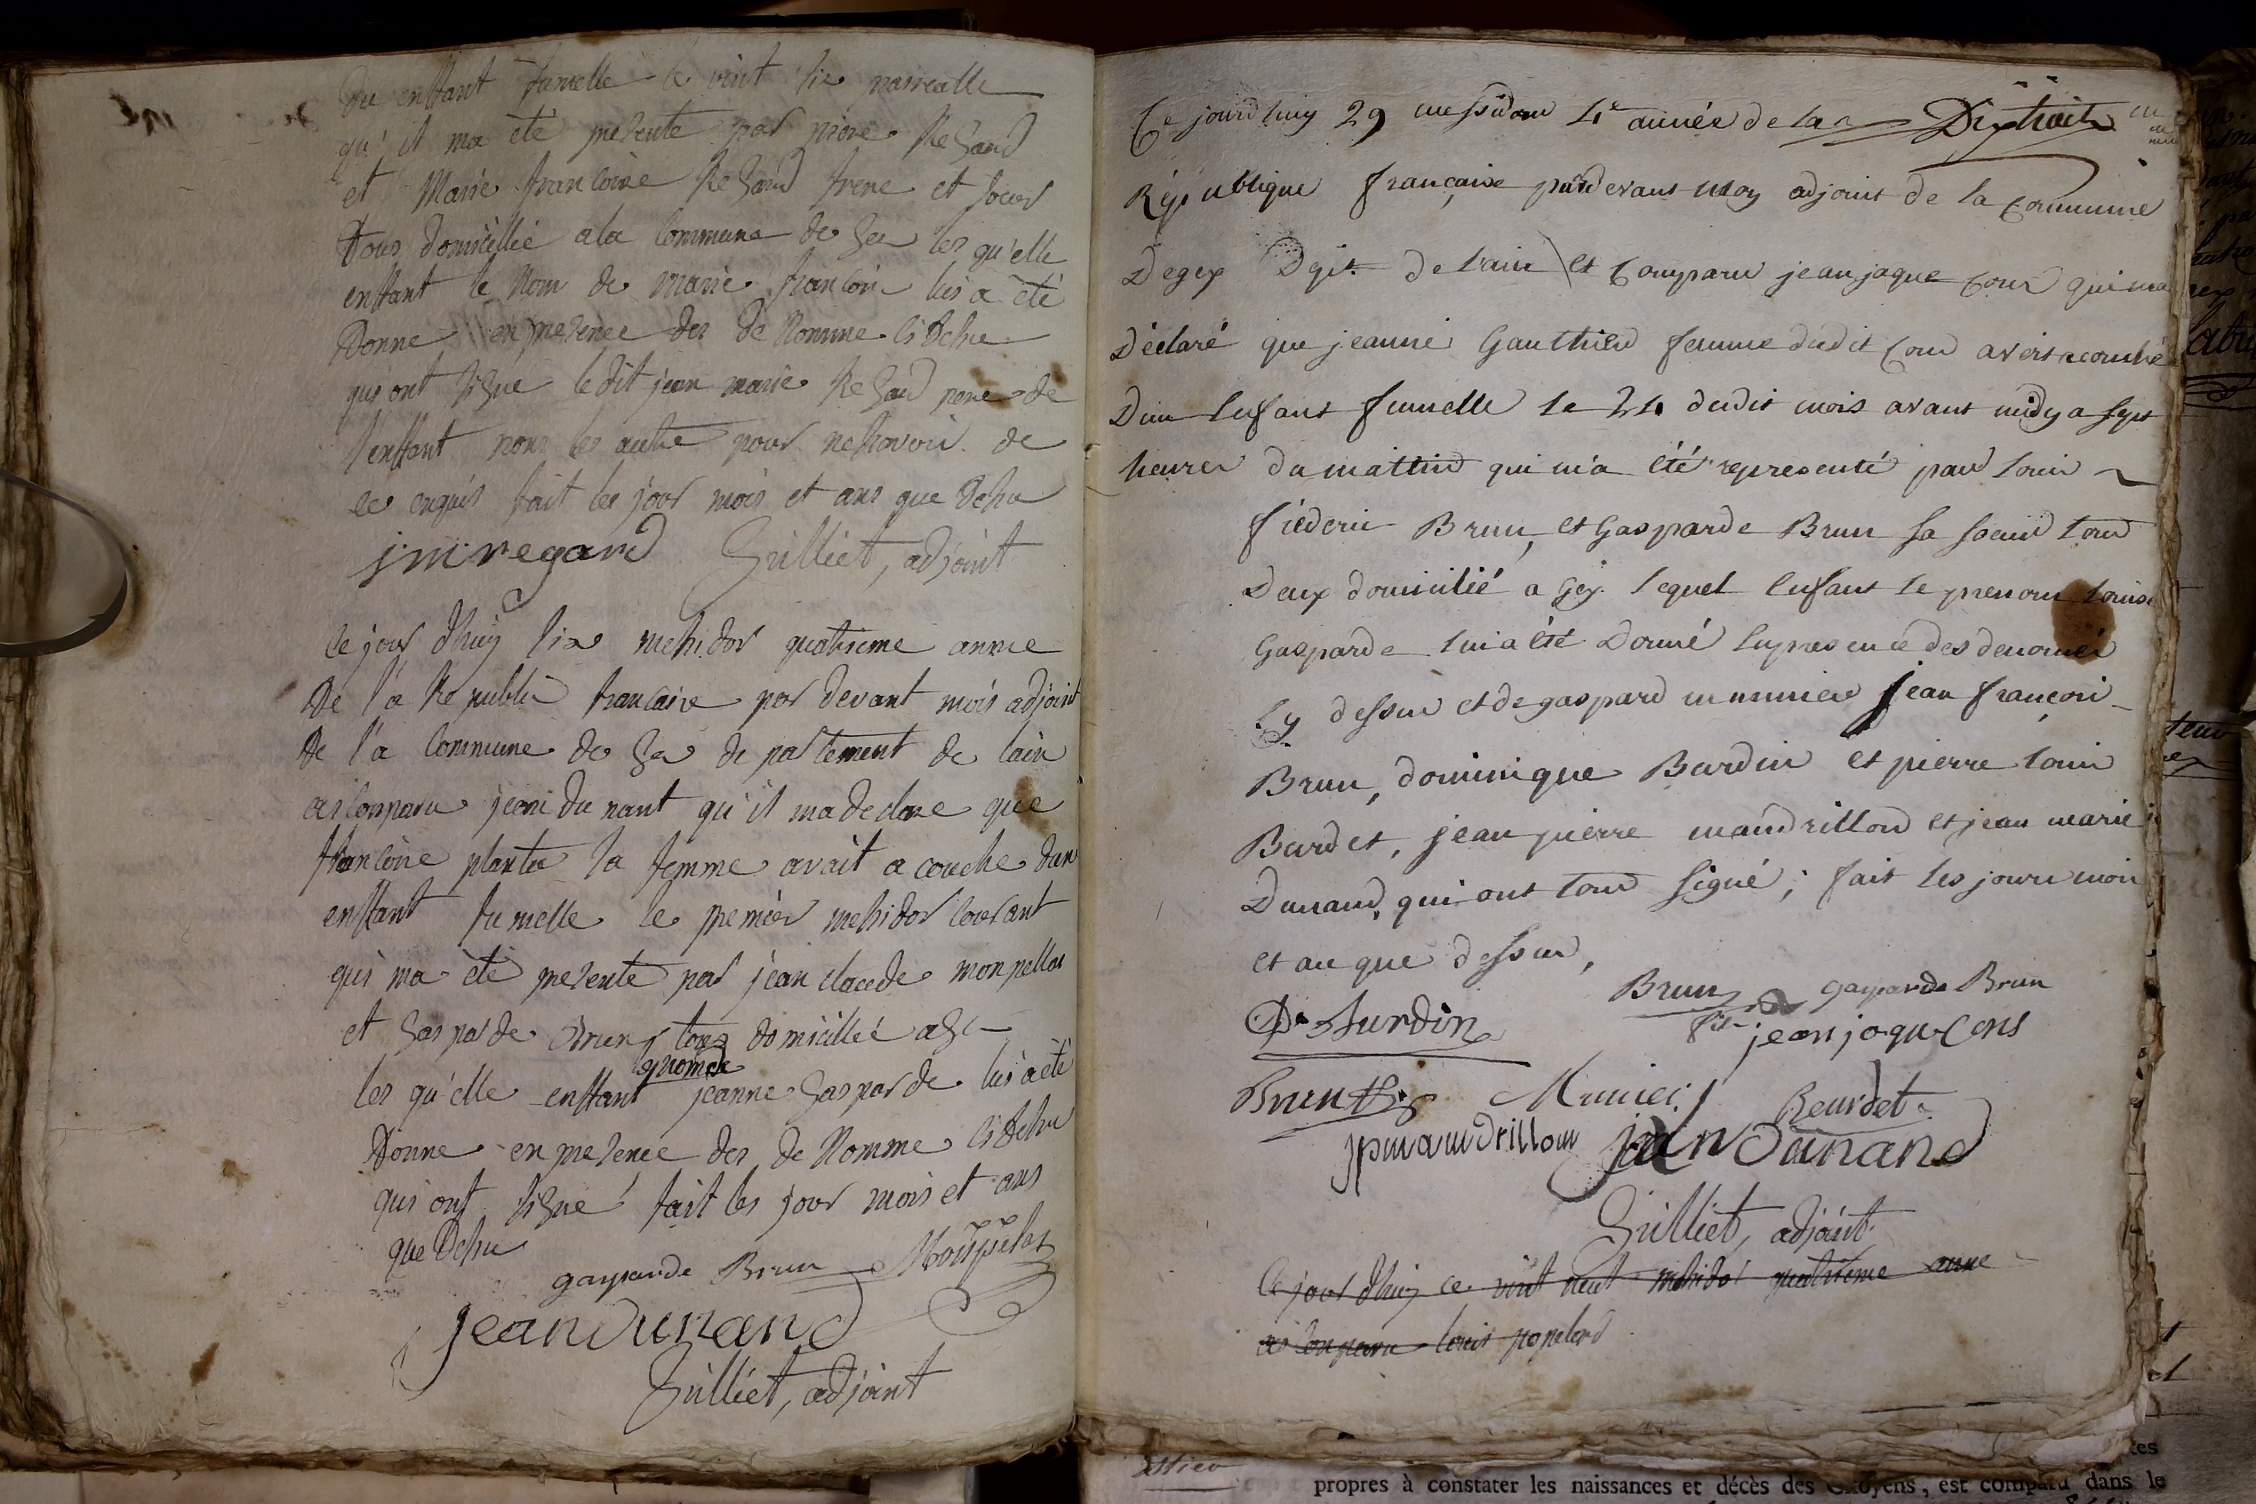 du enffant fumelle le vint six prerealle
qu'il ma été presente par piere Regard
et Marie francoise Regard frere et soeur
tous domicillié a la Commune de Gex les qu'elle
enffant le Nom de marie francoise lui a été
Donne en presence des de Nomme si dessu
qui ont signe le dit jean marie Regard pere de
l'enffant non les autre pour ne savoir de
ce enquis fait les jour mois et ans que dessu
jm regard Gilliet, adjoint
Ce jour d'huy six messidor quatrieme annee
De l'a Republi francaise par devant mois adjoint
De l'a Commune de Gex de partement de lain
ai Comparu jean du nant qu'il ma declare que
francoise planta sa femme avait a couche dun
enffant fumelle le premier messidor courant
qui ma été presente par jean claude monpellas
et Gasparde Brun tous domicillié a Gex
les qu'elle enffant prenom de jeanne Gasparde lui a été
Donne en presence des de Nomme si dessu
qui ont signé fait les jour mois et ans
que dessu
gasparde Brun Monpelas
jean dunand
Gilliet, adjoint
Ce jourd'huy 29 messidor 4e année de la Dextrait
République française pardevant moy adjoint de la commune
Degex Dpt. de l'ain est Comparu jean jaque Cons qui ma
Déclaré que jeanne Gauthier femme dudit Cons avoit acouché
D'un Enfant fumelle le 24 dudit mois avant midy a sept
heures du mattin qui m'a été representé par Louis
fréderic Brun, et Gasparde Brun sa soeur tous
Deux domicilié a Gex. lequel Enfant le prenom Louise
Gasparde lui a été Donné En presence des denomés
Cy dessus et de gaspard munier Jean françois
Brun, dominique Burdin et pierre Louis
Burdet, jean pierre mandrillon et jean marie
Dunand, qui ont tous signé; fait les jour mois
et an que dessus,
Brun fils gasparde Brun
D. Burdin jean jaque Cons
Brun Munier Beurdet
jp mandrillon jean dunand
Gilliet, adjoint
Ce jour d'huy ce vint neut messidor quatrieme anne
ai Comparu louis papelard
propres à constater les naissances et décès des Citoyens, est comparu dans le